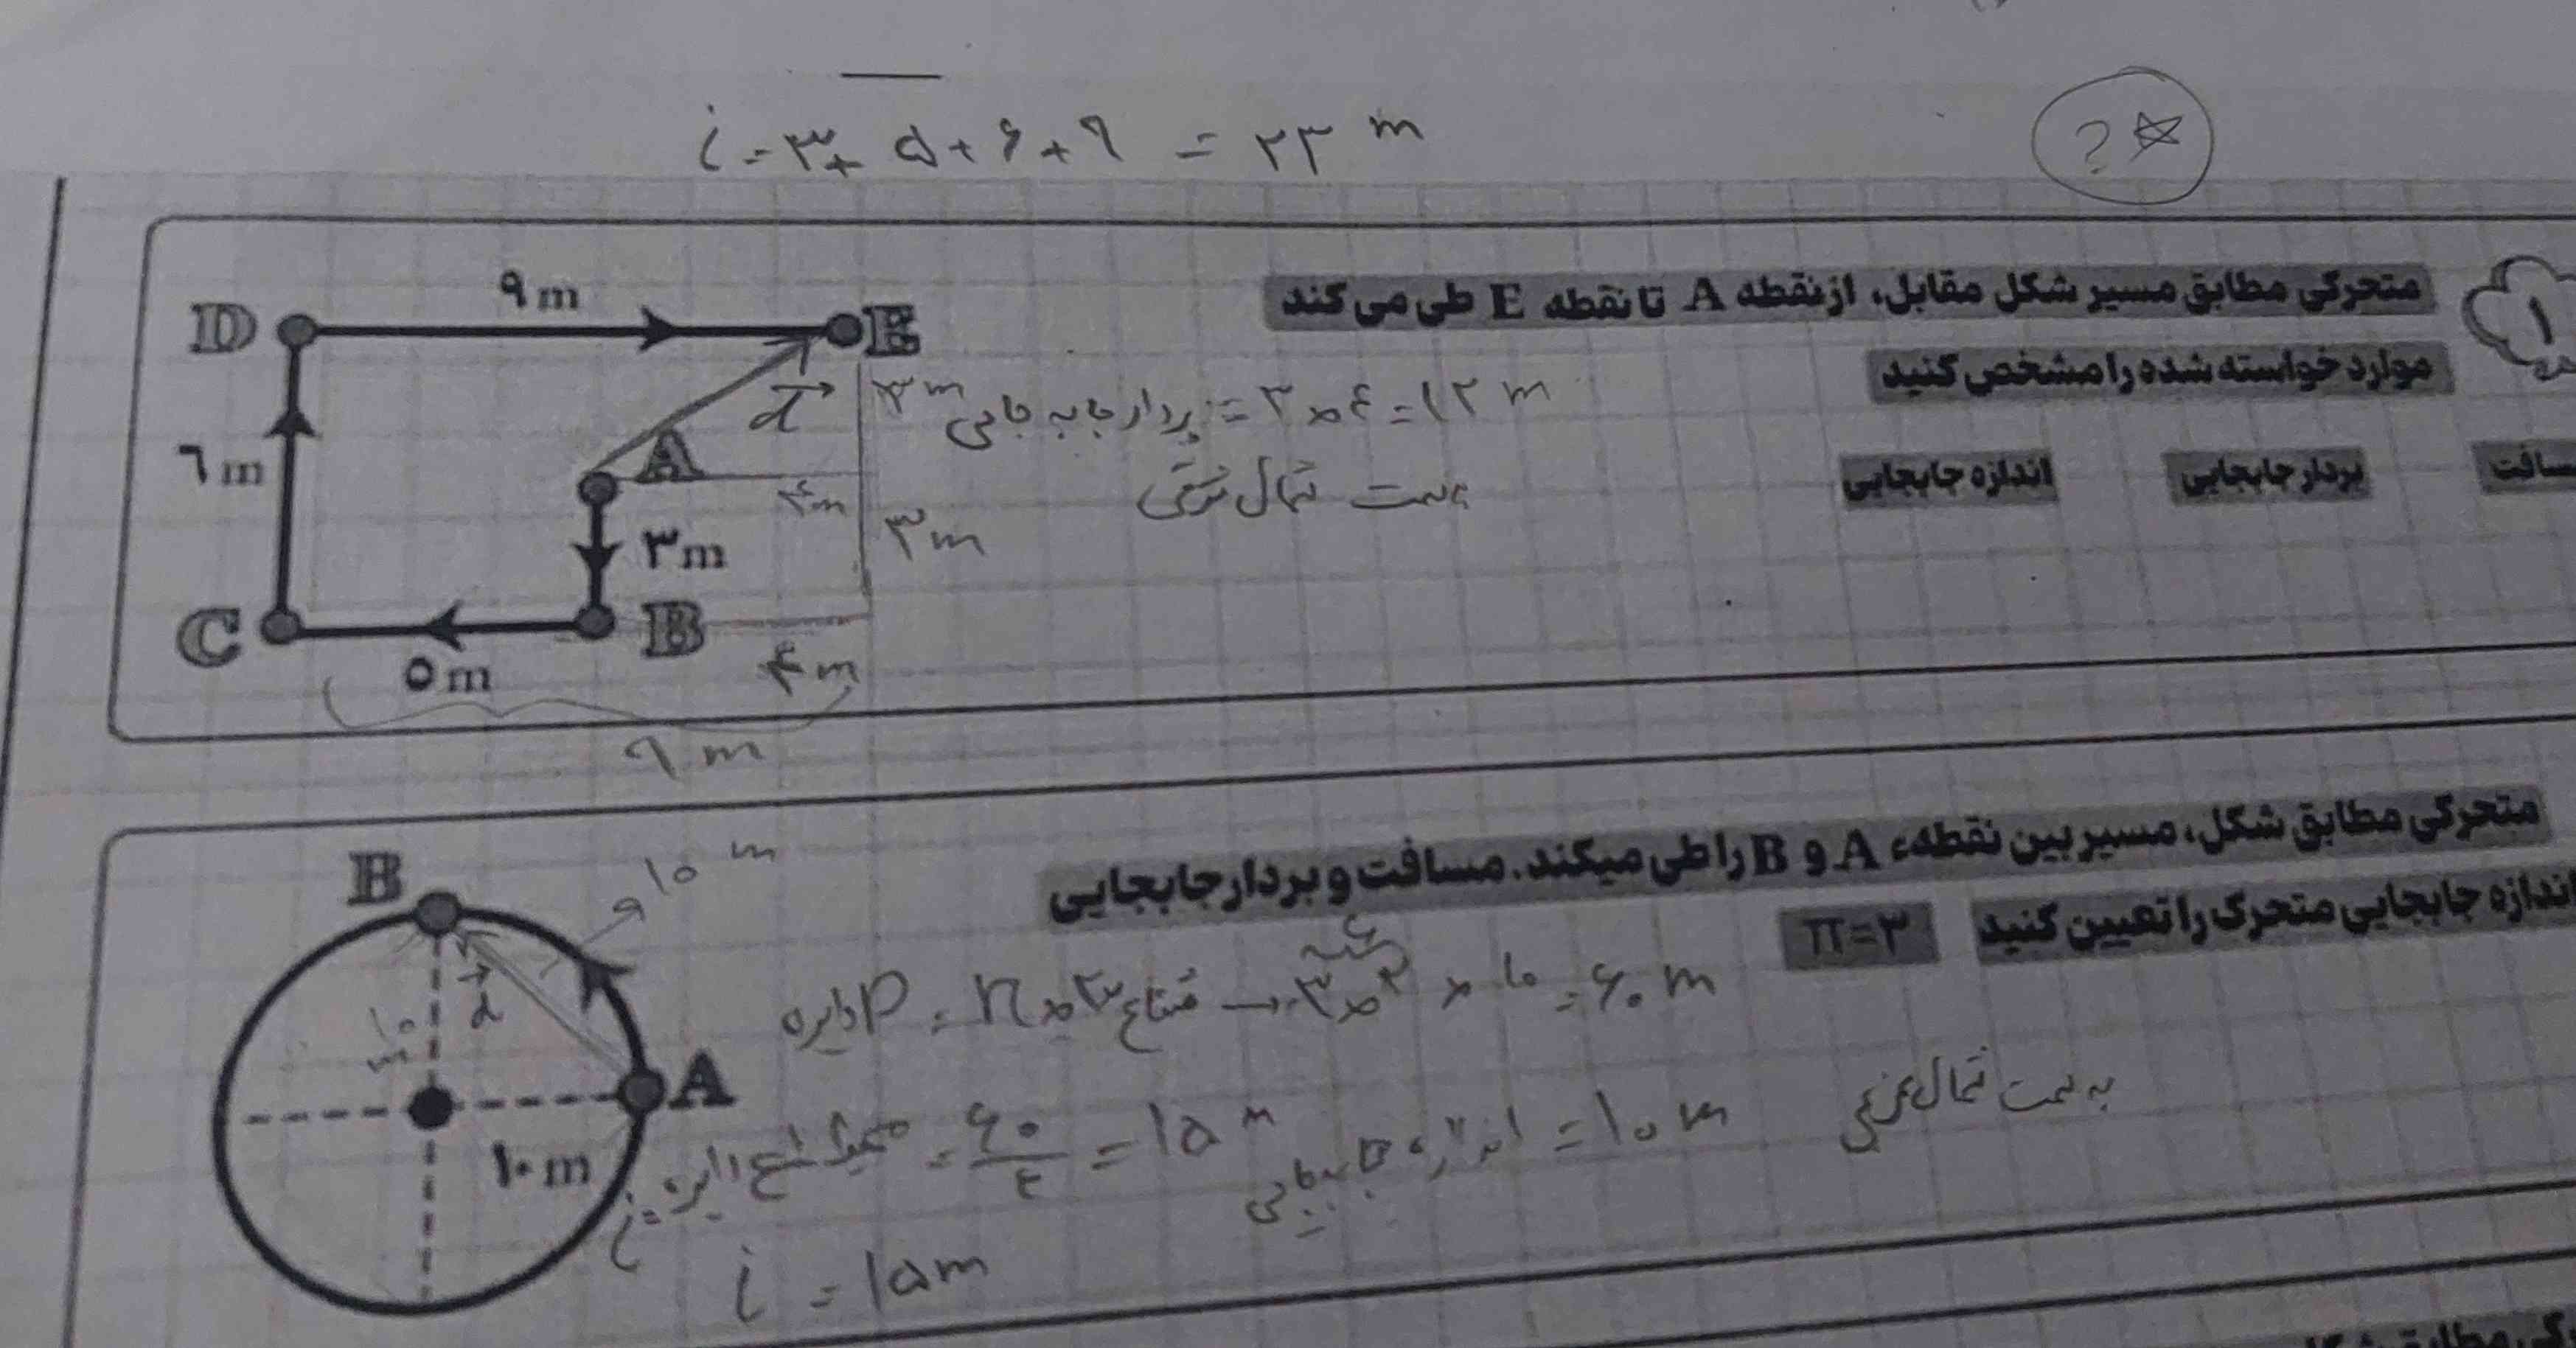 i = ۳ + ۵ + ۶ + ۹ = ۲۳ m
? 
۱
متحرکی مطابق مسیر شکل مقابل، از نقطه A تا نقطه E طی می کند
موارد خواسته شده را مشخص کنید
بردار جابجایی
اندازه جابجایی
D ۹m E
d
۳m
بردار جابه جایی = ۳ × ۴ = ۱۲ m
۶m
A
۴m
سمت شمال شرقی
۳m
۳m
C
B
۵m
۴m
۹ m
متحرکی مطابق شکل، مسیر بین نقطهء A و B را طی میکند. مسافت و بردار جابجایی
اندازه جابجایی متحرک را تعیین کنید π=۳
B
۱۰ m
۱۰ m
d
A
۱۰m
P دایره = π × ۲ شعاع → ۳ × ۲ × ۱۰ = ۶۰ m
= ۶۰/۴ = ۱۵ m
اندازه جابه جایی = ۱۰ m
به سمت شمال غربی
i = ۱۵m